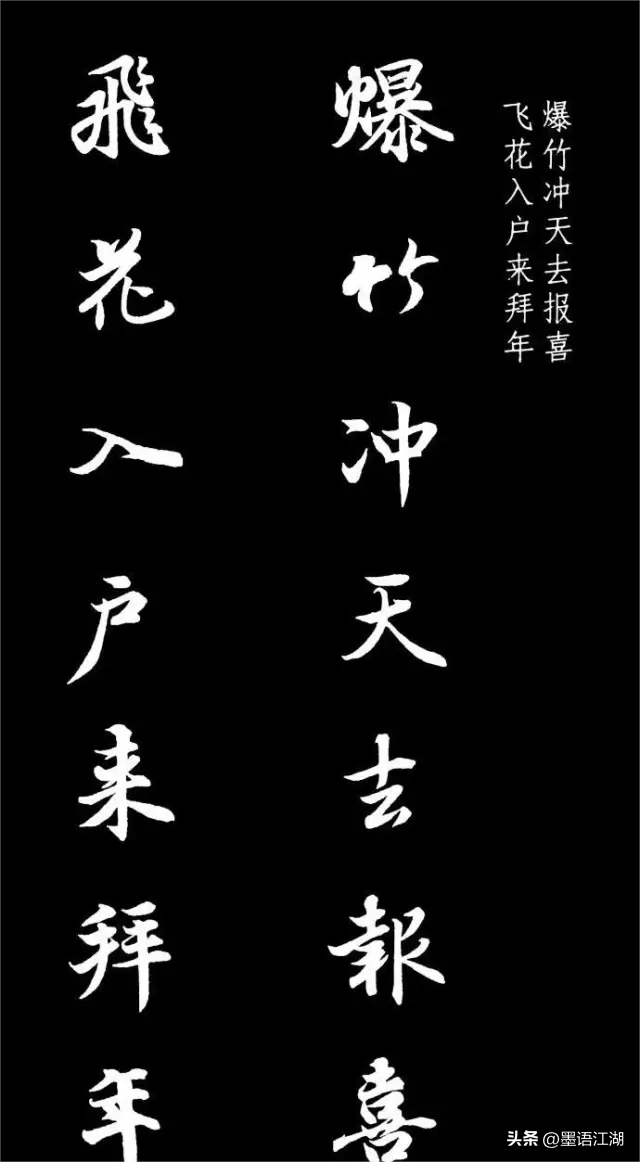 爆竹冲天去报喜
飞花入户来拜年
爆竹冲天去報喜
飛花入户来拜年
头条 @墨语江湖